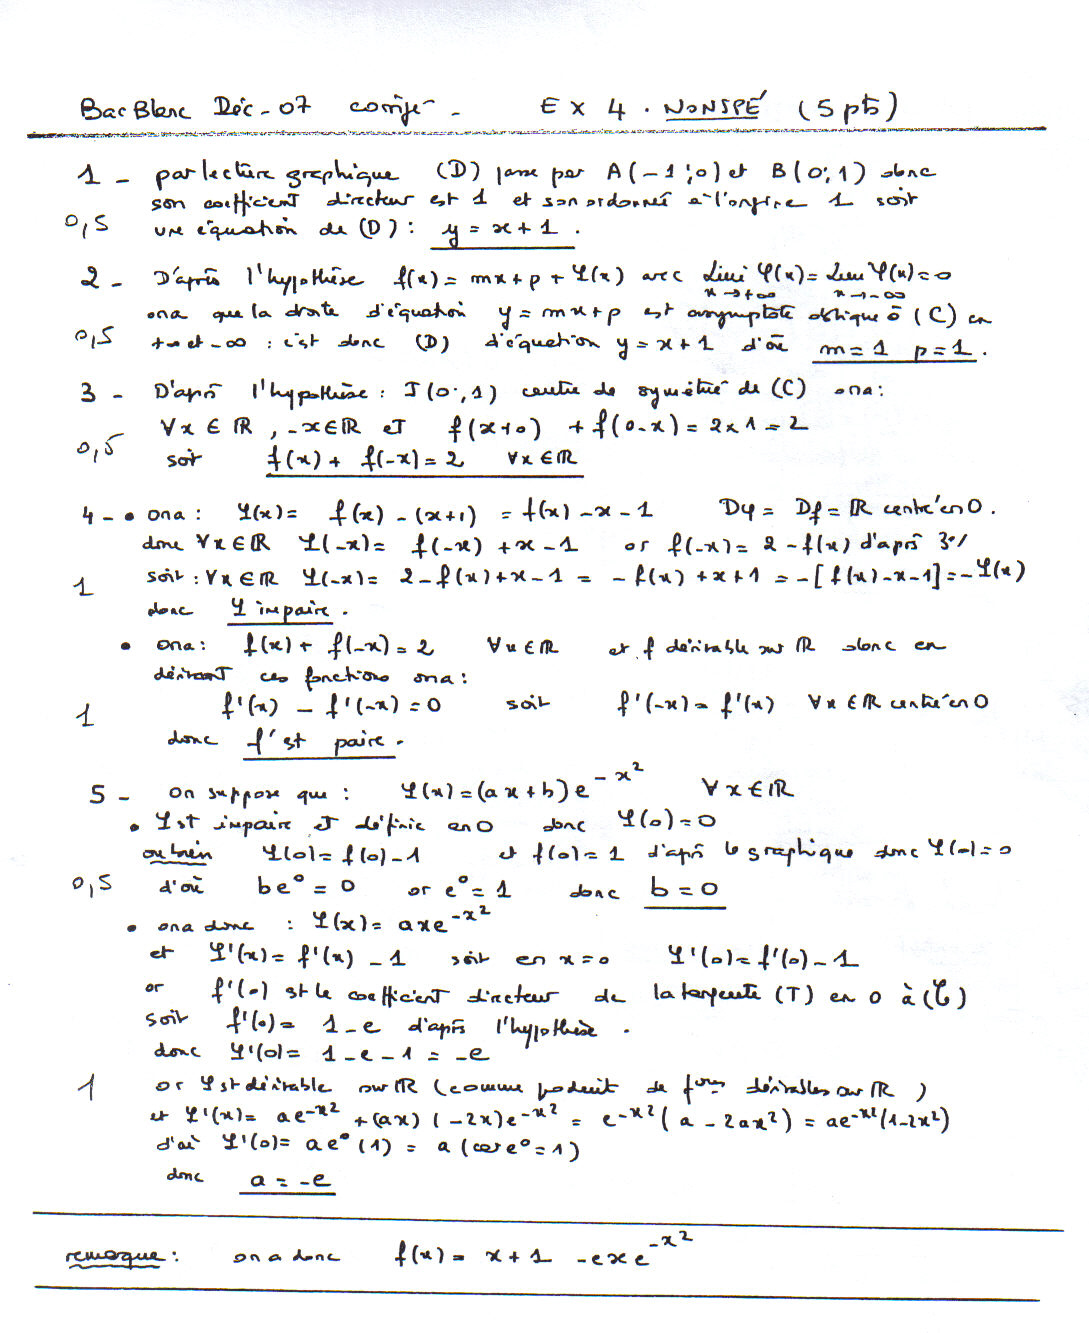 Bac Blanc Déc-07 corrigé - EX 4 . NONSPÉ (5 pts)
1 - par lecture graphique (D) passe par A(-1;0) et B(0;1) donc
son coefficient directeur est 1 et son ordonnée à l'origine 1 soit
0,5 une équation de (D) : y = x + 1 .
2 - D'après l'hypothèse f(x) = mx + p + φ(x) avec Lim φ(x) = Lim φ(x) = 0
x→+∞ x→-∞
on a que la droite d'équation y = mx + p est asymptote oblique à (C) en
0,5 +∞ et -∞ : c'est donc (D) d'équation y = x + 1 d'où m = 1 p = 1 .
3 - D'après l'hypothèse : I(0;1) centre de symétrie de (C) on a :
∀x ∈ ℝ , -x ∈ ℝ et f(x+0) + f(0-x) = 2×1 = 2
0,5 soit f(x) + f(-x) = 2 ∀x ∈ ℝ
4 - • on a : φ(x) = f(x) - (x+1) = f(x) - x - 1 Dφ = Df = ℝ centré en 0 .
donc ∀x ∈ ℝ φ(-x) = f(-x) + x - 1 or f(-x) = 2 - f(x) d'après 3°/
1 soit : ∀x ∈ ℝ φ(-x) = 2 - f(x) + x - 1 = - f(x) + x + 1 = -[f(x) - x - 1] = -φ(x)
donc φ impaire .
• on a : f(x) + f(-x) = 2 ∀x ∈ ℝ et f dérivable sur ℝ donc en
dérivant ces fonctions on a :
1 f'(x) - f'(-x) = 0 soit f'(-x) = f'(x) ∀x ∈ ℝ centré en 0
donc f' est paire .
5 - on suppose que : φ(x) = (ax + b) e^{-x²} ∀x ∈ ℝ
• φ est impaire et définie en 0 donc φ(0) = 0
ou bien φ(0) = f(0) - 1 et f(0) = 1 d'après le graphique donc φ(0) = 0
0,5 d'où be⁰ = 0 or e⁰ = 1 donc b = 0
• on a donc : φ(x) = axe^{-x²}
et φ'(x) = f'(x) - 1 soit en x = 0 φ'(0) = f'(0) - 1
or f'(0) est le coefficient directeur de la tangente (T) en 0 à (C)
soit f'(0) = 1 - e d'après l'hypothèse .
donc φ'(0) = 1 - e - 1 = -e
1 or φ est dérivable sur ℝ (comme produit de fons dérivables sur ℝ )
et φ'(x) = ae^{-x²} + (ax) (-2x)e^{-x²} = e^{-x²}(a - 2ax²) = ae^{-x²}(1-2x²)
d'où φ'(0) = ae⁰ (1) = a (car e⁰ = 1)
donc a = -e
remarque : on a donc f(x) = x + 1 - exe^{-x²}